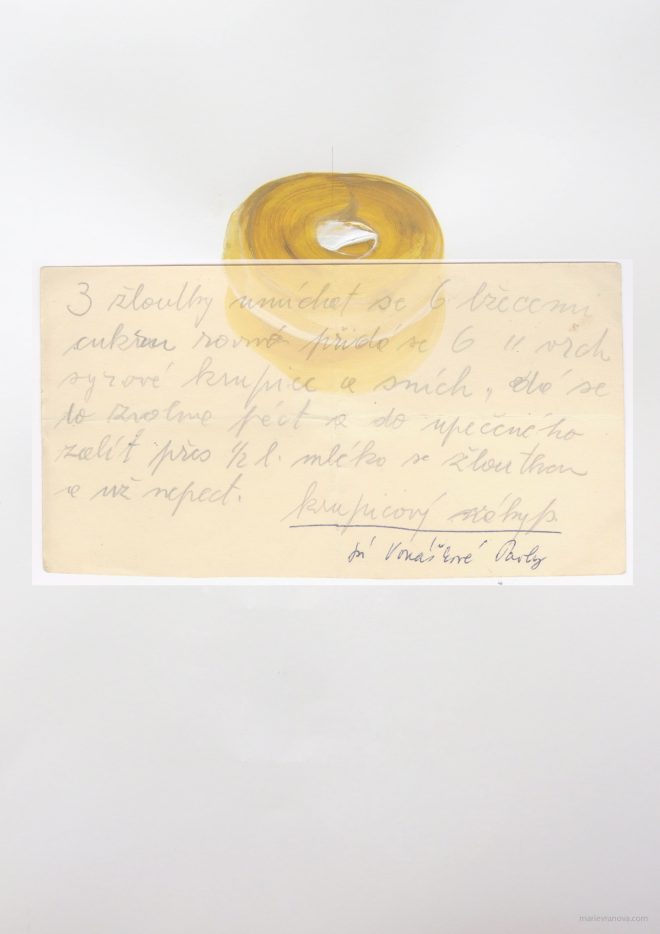 3 žloutky umíchat se 6 lžícemi
cukru rovné přidá se 6 " vrch
syrové krupice a sních, dá se
to zvolna péct a do upečeného
zalít přes 1/2 l. mléko se žloutkem
a už nepect.
krupicový nákyp.
Vonáškové Pavly
marievranova.com